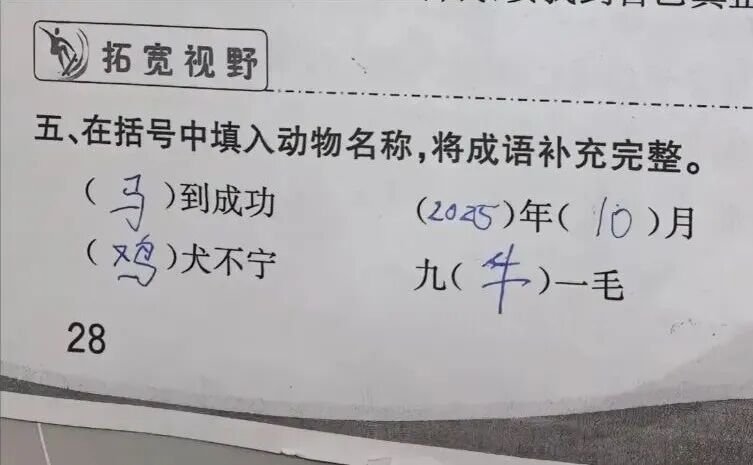 拓宽视野
五、在括号中填入动物名称,将成语补充完整。
(马)到成功 (2025)年(10)月
(鸡)犬不宁 九(牛)一毛
28